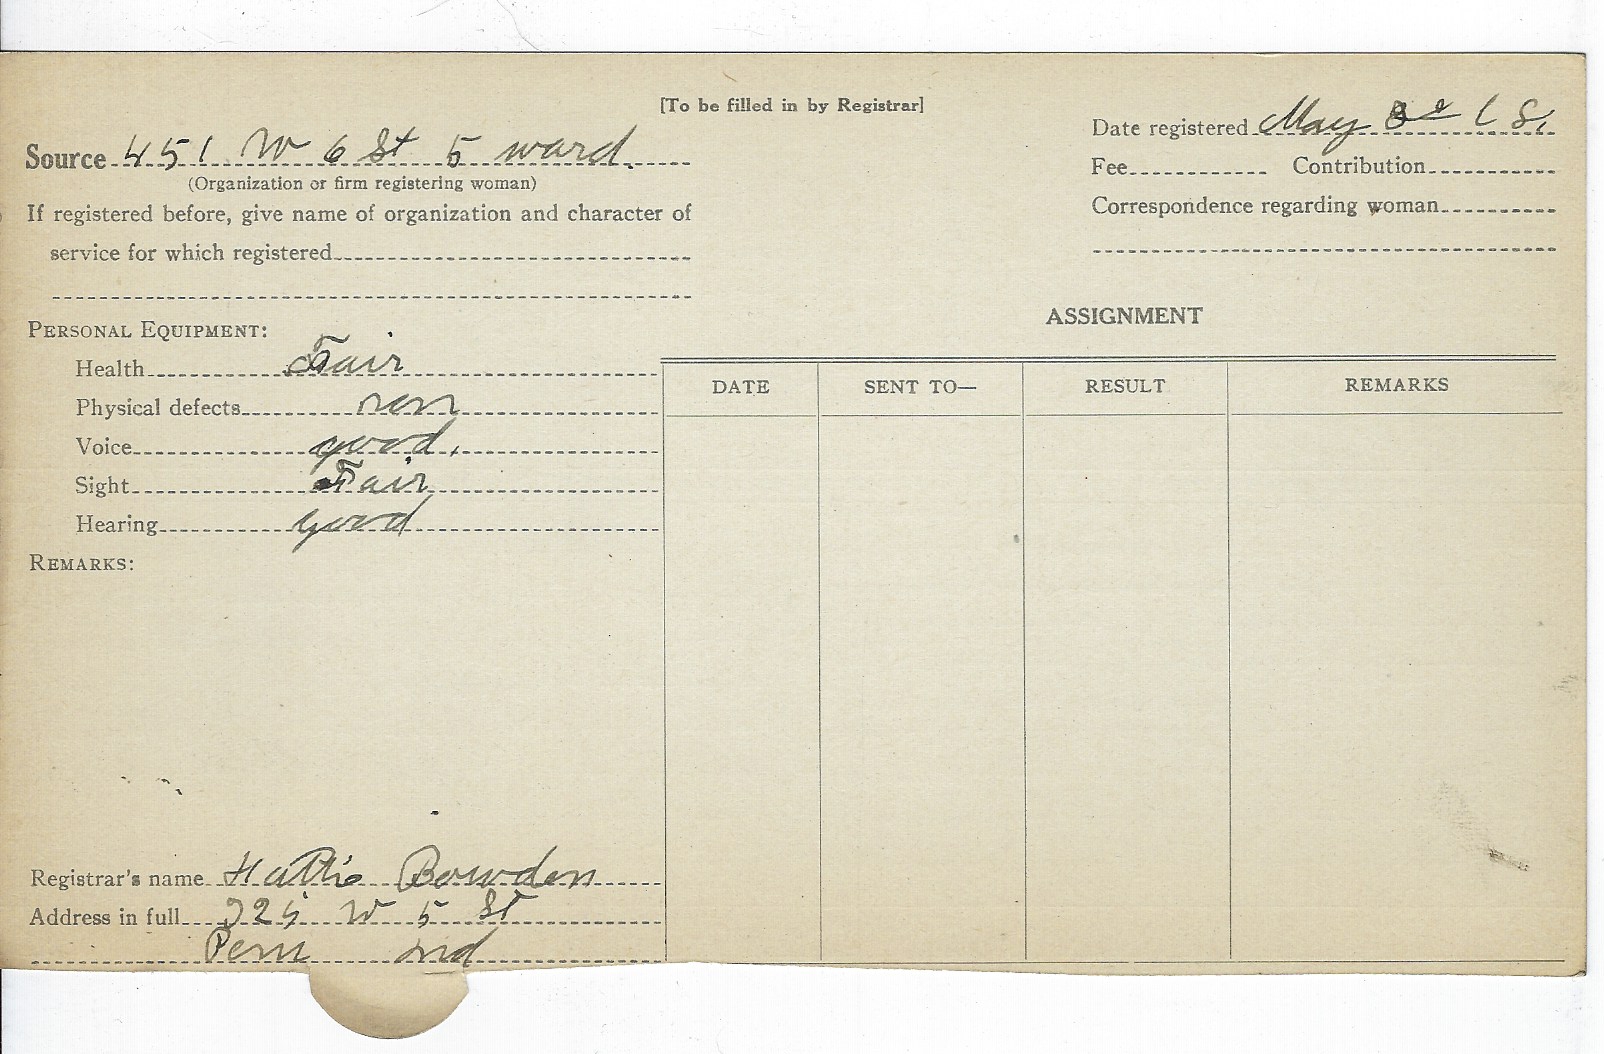 [To be filled in by Registrar]
Source 451 W 6 St 5 ward.
(Organization or firm registering woman)
If registered before, give name of organization and character of
service for which registered
Date registered May
Fee Contribution
Correspondence regarding woman
PERSONAL EQUIPMENT:
Health Fair
Physical defects non
Voice good.
Sight Fair
Hearing good
REMARKS:
Registrar's name Hattie Bowden
Address in full 325 W 5 St
Peru Ind
ASSIGNMENT
DATE SENT TO— RESULT REMARKS